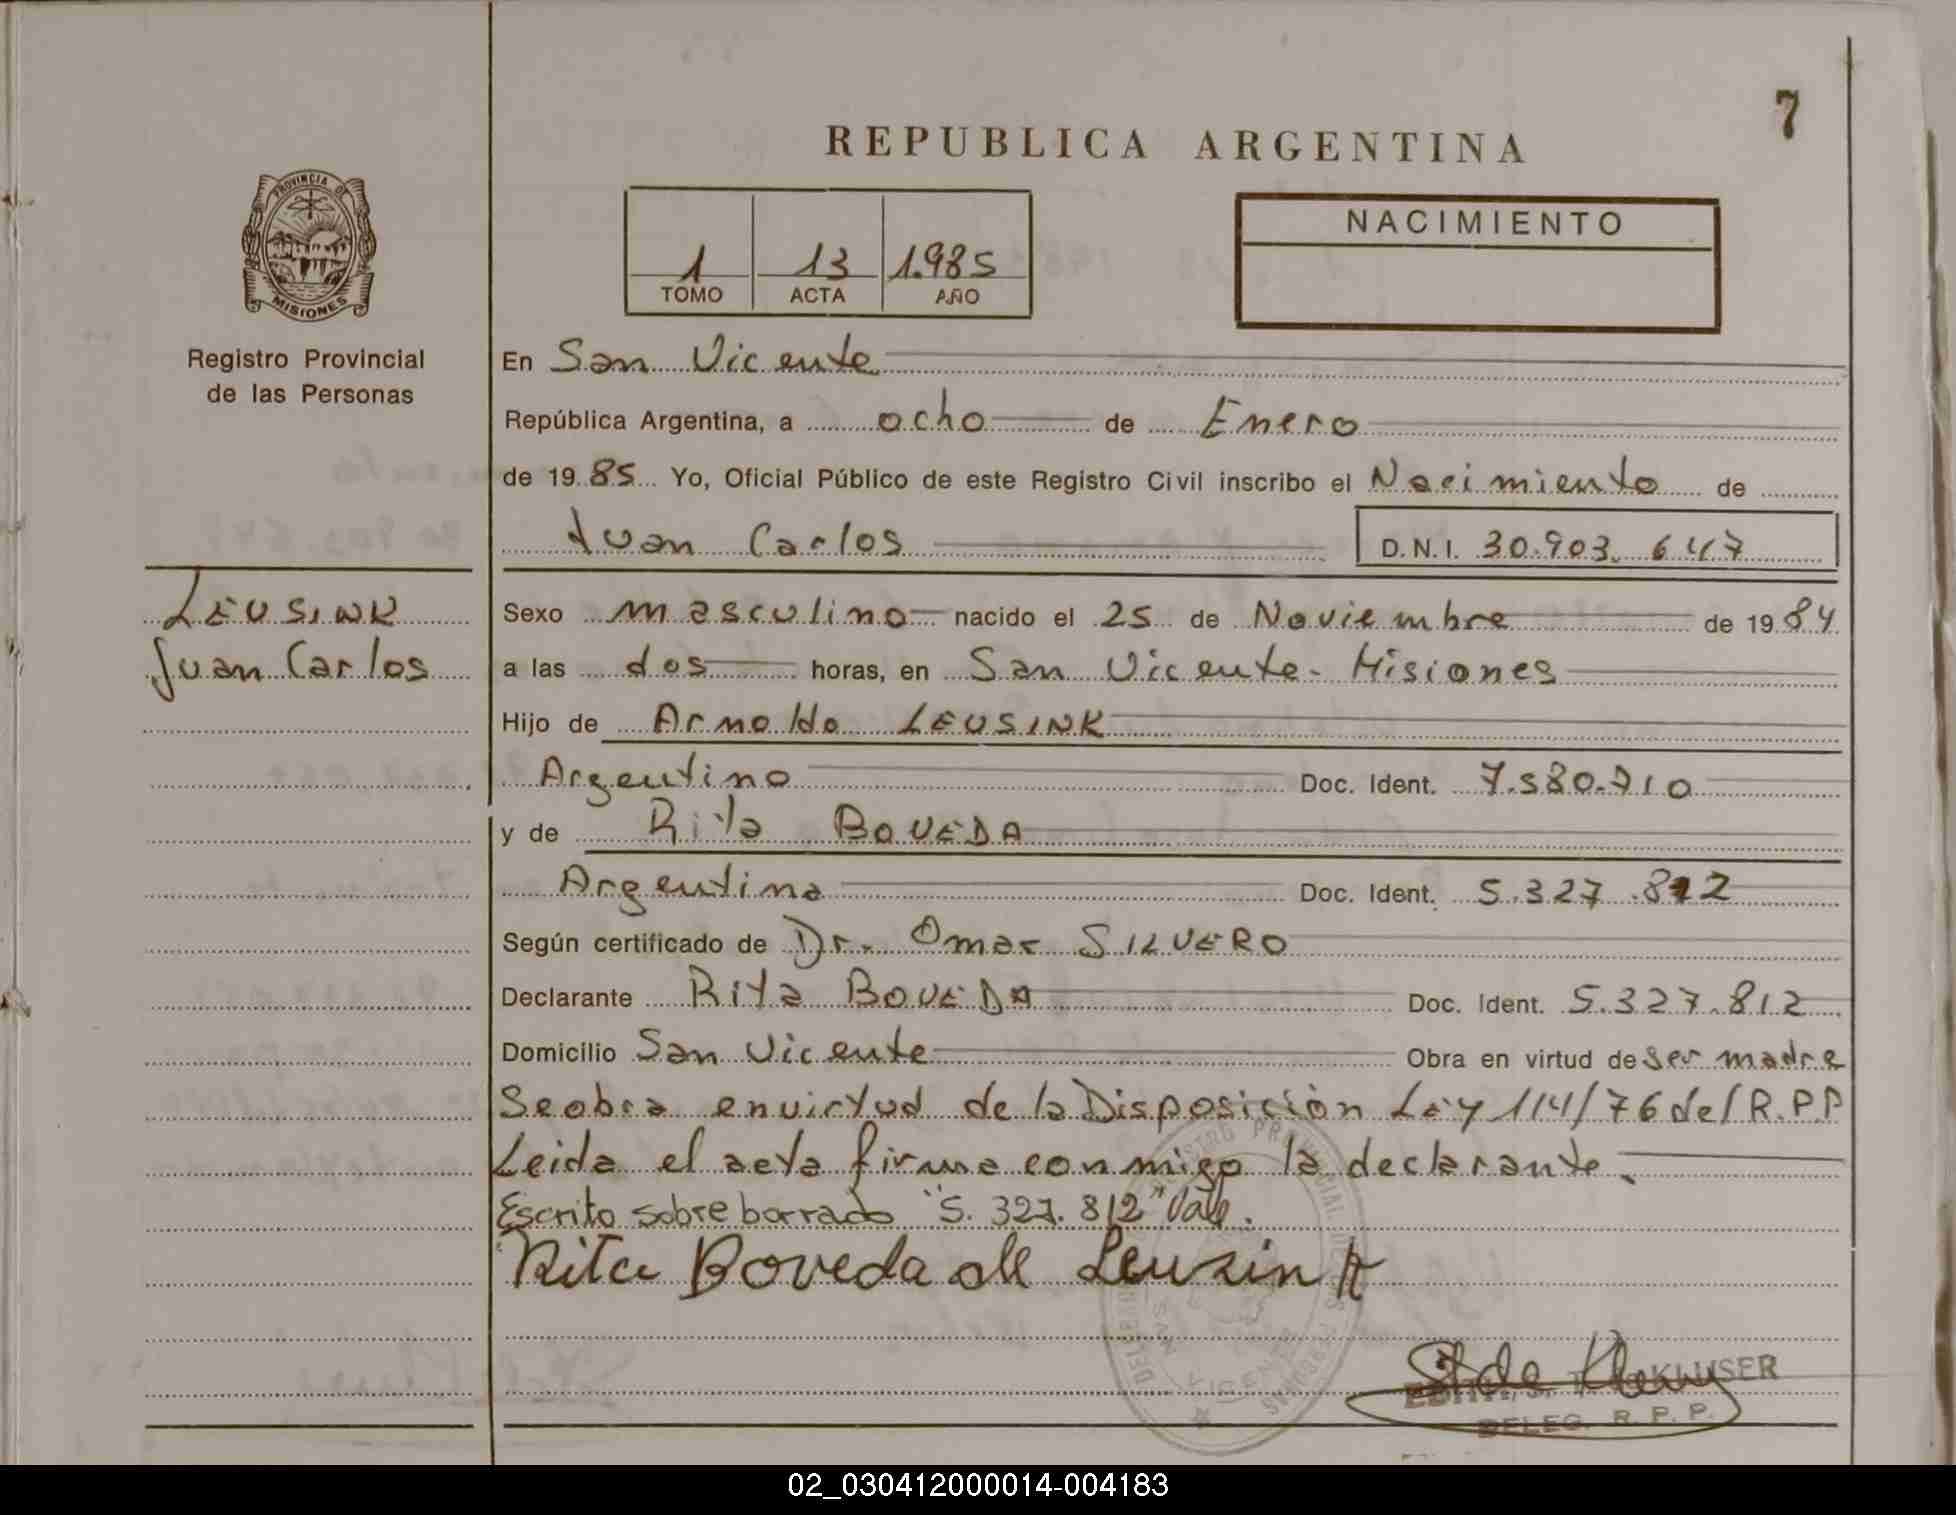 7
REPUBLICA ARGENTINA
PROVINCIA DE
MISIONES
NACIMIENTO
1 13 1.985
TOMO ACTA AÑO
Registro Provincial
de las Personas
En San Vicente
República Argentina, a ocho de Enero
de 19 85 Yo, Oficial Público de este Registro Civil inscribo el Nacimiento de
Juan Carlos D.N.I. 30.903.647
LEUSINK
Juan Carlos
Sexo masculino nacido el 25 de Noviembre de 19 84
a las dos horas, en San Vicente - Misiones
Hijo de Arnoldo LEUSINK
Argentino Doc. Ident. 7.580.710
y de Rita BOVEDA
Argentina Doc. Ident. 5.327.812
Según certificado de Dr. Omar SILVERO
Declarante Rita BOVEDA Doc. Ident. 5.327.812
Domicilio San Vicente Obra en virtud de ser madre
Se obra en virtud de la Disposición Ley 114/76 del R.P.P
Leida el acta firma conmigo la declarante.
Escrito sobre borrado "5.327.812" Vale.
Rita Boveda de Leusink
KLUSER
DELEG. R. P. P.
02_030412000014-004183